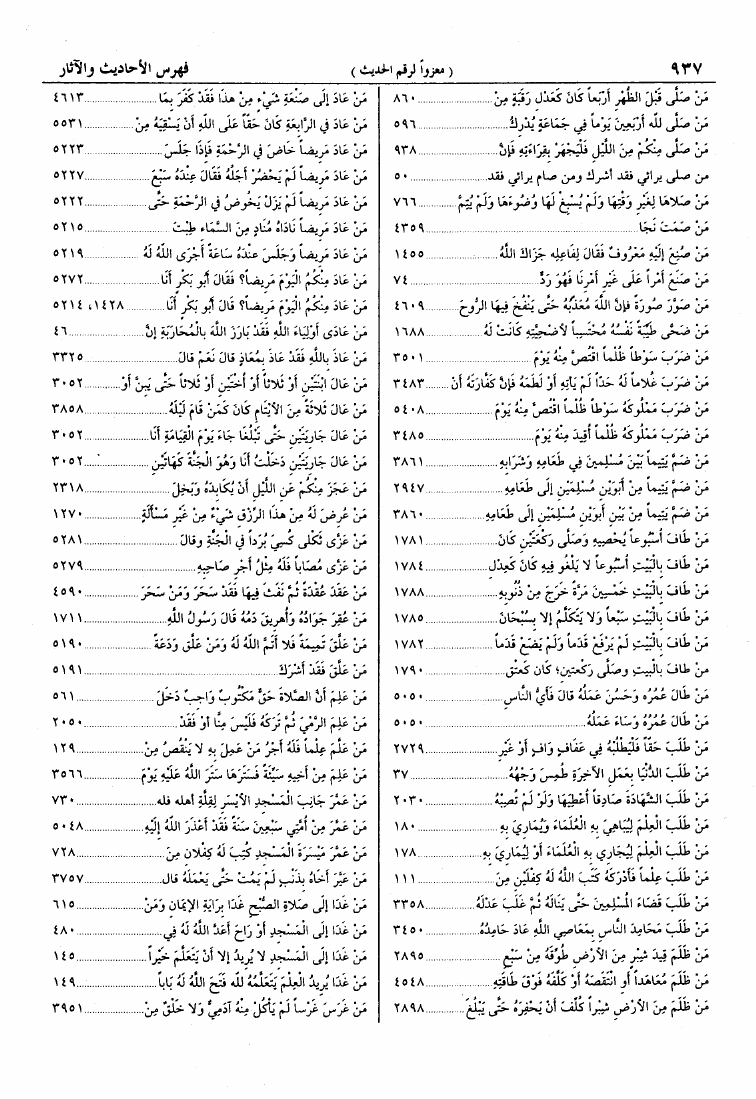 ٩٣٧ ( معزواً لرقم الحديث ) فهرس الأحاديث والآثار
مَنْ صَلَّى قَبْلَ الظُّهْرِ أَرْبَعاً كَانَ كَعَدْلِ رَقَبَةٍ مِنْ ........ ٨٦٠
مَنْ صَلَّى للهِ أَرْبَعِينَ يَوْماً فِي جَمَاعَةٍ يُدْرِكُ ........ ٥٩٦
مَنْ صَلَّى مِنْكُمْ مِنَ اللَّيْلِ فَلْيَجْهَرْ بِقِرَاءَتِهِ فَإِنَّ ........ ٩٣٨
من صلى يرائي فقد أشرك ومن صام يرائي فقد ........ ٥٠
مَنْ صَلاهَا لِغَيْرِ وَقْتِهَا وَلَمْ يُسْبِغْ لَهَا وُضُوءَهَا وَلَمْ يُتِمَّ ........ ٧٦٦
مَنْ صَمَتَ نَجَا ........ ٤٣٥٩
مَنْ صُنِعَ إِلَيْهِ مَعْرُوفٌ فَقَالَ لِفَاعِلِهِ جَزَاكَ اللَّهُ ........ ١٤٥٥
مَنْ صَنَعَ أَمْراً عَلَى غَيْرِ أَمْرِنَا فَهُوَ رَدٌّ ........ ٧٤
مَنْ صَوَّرَ صُورَةً فَإِنَّ اللَّهَ مُعَذِّبُهُ حَتَّى يَنْفُخَ فِيهَا الرُّوحَ ........ ٤٦٠٩
مَنْ ضَحَّى طَيِّبَةً نَفْسُهُ مُحْتَسِباً لأُضْحِيَّتِهِ كَانَتْ لَهُ ........ ١٦٨٨
مَنْ ضَرَبَ سَوْطاً ظُلْماً اقْتُصَّ مِنْهُ يَوْمَ ........ ٣٥٠١
مَنْ ضَرَبَ غُلاماً لَهُ حَدّاً لَمْ يَأْتِهِ أَوْ لَطَمَهُ فَإِنَّ كَفَّارَتَهُ أَنْ ........ ٣٤٨٣
مَنْ ضَرَبَ مَمْلُوكَهُ سَوْطاً ظُلْماً اقْتُصَّ مِنْهُ يَوْمَ ........ ٥٤٠٨
مَنْ ضَرَبَ مَمْلُوكَهُ ظُلْماً أُقِيدَ مِنْهُ يَوْمَ ........ ٣٤٨٥
مَنْ ضَمَّ يَتِيماً بَيْنَ مُسْلِمَيْنِ فِي طَعَامِهِ وَشَرَابِهِ ........ ٣٨٦١
مَنْ ضَمَّ يَتِيماً مِنْ أَبَوَيْنِ مُسْلِمَيْنِ إِلَى طَعَامِهِ ........ ٢٩٤٧
مَنْ ضَمَّ يَتِيماً مِنْ بَيْنِ أَبَوَيْنِ مُسْلِمَيْنِ إِلَى طَعَامِهِ ........ ٣٨٦٠
مَنْ طَافَ أُسْبُوعاً يُحْصِيهِ وَصَلَّى رَكْعَتَيْنِ كَانَ ........ ١٧٨١
مَنْ طَافَ بِالْبَيْتِ أُسْبُوعاً لا يَلْغُو فِيهِ كَانَ كَعِدْلِ ........ ١٧٨٤
مَنْ طَافَ بِالْبَيْتِ خَمْسِينَ مَرَّةً خَرَجَ مِنْ ذُنُوبِهِ ........ ١٧٨٨
مَنْ طَافَ بِالْبَيْتِ سَبْعاً وَلا يَتَكَلَّمُ إِلا بِسُبْحَانَ ........ ١٧٨٥
مَنْ طَافَ بِالْبَيْتِ لَمْ يَرْفَعْ قَدَماً وَلَمْ يَضَعْ قَدَماً ........ ١٧٨٢
من طاف بالبيت وصلى ركعتين؛ كان كعتق ........ ١٧٩٠
مَنْ طَالَ عُمُرُهُ وَحَسُنَ عَمَلُهُ قَالَ فَأَيُّ النَّاسِ ........ ٥٠٥٠
مَنْ طَالَ عُمُرُهُ وَسَاءَ عَمَلُهُ ........ ٥٠٥٠
مَنْ طَلَبَ حَقّاً فَلْيَطْلُبْهُ فِي عَفَافٍ وَافٍ أَوْ غَيْرِ ........ ٢٧٢٩
مَنْ طَلَبَ الدُّنْيَا بِعَمَلِ الآخِرَةِ طُمِسَ وَجْهُهُ ........ ٣٧
مَنْ طَلَبَ الشَّهَادَةَ صَادِقاً أُعْطِيَهَا وَلَوْ لَمْ تُصِبْهُ ........ ٢٠٣٠
مَنْ طَلَبَ الْعِلْمَ لِيُبَاهِيَ بِهِ الْعُلَمَاءَ وَيُمَارِيَ بِهِ ........ ١٨٠
مَنْ طَلَبَ الْعِلْمَ لِيُجَارِيَ بِهِ الْعُلَمَاءَ أَوْ لِيُمَارِيَ بِهِ ........ ١٧٨
مَنْ طَلَبَ عِلْماً فَأَدْرَكَهُ كَتَبَ اللَّهُ لَهُ كِفْلَيْنِ مِنَ ........ ١١١
مَنْ طَلَبَ قَضَاءَ الْمُسْلِمِينَ حَتَّى يَنَالَهُ ثُمَّ غَلَبَ عَدْلُهُ ........ ٣٣٥٨
مَنْ طَلَبَ مَحَامِدَ النَّاسِ بِمَعَاصِي اللَّهِ عَادَ حَامِدُهُ ........ ٣٤٥٠
مَنْ ظَلَمَ قِيدَ شِبْرٍ مِنَ الأَرْضِ طُوِّقَهُ مِنْ سَبْعِ ........ ٢٨٩٥
مَنْ ظَلَمَ مُعَاهَداً أَوِ انْتَقَصَهُ أَوْ كَلَّفَهُ فَوْقَ طَاقَتِهِ ........ ٤٥٤٨
مَنْ ظَلَمَ مِنَ الأَرْضِ شِبْراً كُلِّفَ أَنْ يَحْفِرَهُ حَتَّى يَبْلُغَ ........ ٢٨٩٨
مَنْ عَادَ إِلَى صَنْعَةِ شَيْءٍ مِنْ هذَا فَقَدْ كَفَرَ بِمَا ........ ٤٦١٣
مَنْ عَادَ فِي الرَّابِعَةِ كَانَ حَقّاً عَلَى اللَّهِ أَنْ يَسْقِيَهُ مِنْ ........ ٥٥٣١
مَنْ عَادَ مَرِيضاً خَاضَ فِي الرَّحْمَةِ فَإِذَا جَلَسَ ........ ٥٢٢٣
مَنْ عَادَ مَرِيضاً لَمْ يَحْضُرْ أَجَلُهُ فَقَالَ عِنْدَهُ سَبْعَ ........ ٥٢٢٧
مَنْ عَادَ مَرِيضاً لَمْ يَزَلْ يَخُوضُ فِي الرَّحْمَةِ حَتَّى ........ ٥٢٢٢
مَنْ عَادَ مَرِيضاً نَادَاهُ مُنَادٍ مِنَ السَّمَاءِ طِبْتَ ........ ٥٢١٥
مَنْ عَادَ مَرِيضاً وَجَلَسَ عِنْدَهُ سَاعَةً أَجْرَى اللَّهُ لَهُ ........ ٥٢١٩
مَنْ عَادَ مِنْكُمُ الْيَوْمَ مَرِيضاً؟ فَقَالَ أَبُو بَكْرٍ أَنَا ........ ٥٢٧٢
مَنْ عَادَ مِنْكُمُ الْيَوْمَ مَرِيضاً؟ قَالَ أَبُو بَكْرٍ أَنَا ........ ١٤٢٨، ٥٢١٤
مَنْ عَادَى أَوْلِيَاءَ اللَّهِ فَقَدْ بَارَزَ اللَّهَ بِالْمُحَارَبَةِ إِنَّ ........ ٤٦
مَنْ عَاذَ بِاللَّهِ فَقَدْ عَاذَ بِمُعَاذٍ قَالَ نَعَمْ قَالَ ........ ٣٣٢٥
مَنْ عَالَ ابْنَتَيْنِ أَوْ ثَلاثاً أَوْ أُخْتَيْنِ أَوْ ثَلاثاً حَتَّى يَبِنَّ أَوْ ........ ٣٠٥٢
مَنْ عَالَ ثَلاثَةً مِنَ الأَيْتَامِ كَانَ كَمَنْ قَامَ لَيْلَهُ ........ ٣٨٥٨
مَنْ عَالَ جَارِيَتَيْنِ حَتَّى تَبْلُغَا جَاءَ يَوْمَ الْقِيَامَةِ أَنَا ........ ٣٠٥٢
مَنْ عَالَ جَارِيَتَيْنِ دَخَلْتُ أَنَا وَهُوَ الْجَنَّةَ كَهَاتَيْنِ ........ ٣٠٥٢
مَنْ عَجَزَ مِنْكُمْ عَنِ اللَّيْلِ أَنْ يُكَابِدَهُ وَبَخِلَ ........ ٢٣١٨
مَنْ عُرِضَ لَهُ مِنْ هذَا الرِّزْقِ شَيْءٌ مِنْ غَيْرِ مَسْأَلَةٍ ........ ١٢٧٠
مَنْ عَزَّى ثَكْلَى كُسِيَ بُرْداً فِي الْجَنَّةِ وقال ........ ٥٢٨١
مَنْ عَزَّى مُصَاباً فَلَهُ مِثْلُ أَجْرِ صَاحِبِهِ ........ ٥٢٧٩
مَنْ عَقَدَ عُقْدَةً ثُمَّ نَفَثَ فِيهَا فَقَدْ سَحَرَ وَمَنْ سَحَرَ ........ ٤٥٩٠
مَنْ عُقِرَ جَوَادُهُ وَأُهْرِيقَ دَمُهُ قَالَ رَسُولُ اللَّهِ ........ ١٧١١
مَنْ عَلَّقَ تَمِيمَةً فَلا أَتَمَّ اللَّهُ لَهُ وَمَنْ عَلَّقَ وَدَعَةً ........ ٥١٩٠
مَنْ عَلَّقَ فَقَدْ أَشْرَكَ ........ ٥١٩١
مَنْ عَلِمَ أَنَّ الصَّلاةَ حَقٌّ مَكْتُوبٌ وَاجِبٌ دَخَلَ ........ ٥٦١
مَنْ عَلِمَ الرَّمْيَ ثُمَّ تَرَكَهُ فَلَيْسَ مِنَّا أَوْ فَقَدْ ........ ٢٠٥٠
مَنْ عَلَّمَ عِلْماً فَلَهُ أَجْرُ مَنْ عَمِلَ بِهِ لا يَنْقُصُ مِنْ ........ ١٢٩
مَنْ عَلِمَ مِنْ أَخِيهِ سَيِّئَةً فَسَتَرَهَا سَتَرَ اللَّهُ عَلَيْهِ يَوْمَ ........ ٣٥٦٦
مَنْ عَمَّرَ جَانِبَ الْمَسْجِدِ الأَيْسَرِ لِقِلَّةِ أهله فله ........ ٧٣٠
مَنْ عَمَّرَ مِنْ أُمَّتِي سَبْعِينَ سَنَةً فَقَدْ أَعْذَرَ اللَّهُ إِلَيْهِ ........ ٥٠٤٨
مَنْ عَمَّرَ مَيْسَرَةَ الْمَسْجِدِ كُتِبَ لَهُ كِفْلانِ مِنَ ........ ٧٢٨
مَنْ عَيَّرَ أَخَاهُ بِذَنْبٍ لَمْ يَمُتْ حَتَّى يَعْمَلَهُ قال ........ ٣٧٥٧
مَنْ غَدَا إِلَى صَلاةِ الصُّبْحِ غَدَا بِرَايَةِ الإِيمَانِ وَمَنْ ........ ٦١٥
مَنْ غَدَا إِلَى الْمَسْجِدِ أَوْ رَاحَ أَعَدَّ اللَّهُ لَهُ فِي ........ ٤٨٠
مَنْ غَدَا إِلَى الْمَسْجِدِ لا يُرِيدُ إِلا أَنْ يَتَعَلَّمَ خَيْراً ........ ١٤٥
مَنْ غَدَا يُرِيدُ الْعِلْمَ يَتَعَلَّمُهُ للهِ فَتَحَ اللَّهُ لَهُ بَاباً ........ ١٤٩
مَنْ غَرَسَ غَرْساً لَمْ يَأْكُلْ مِنْهُ آدَمِيٌّ وَلا خَلْقٌ مِنْ ........ ٣٩٥١